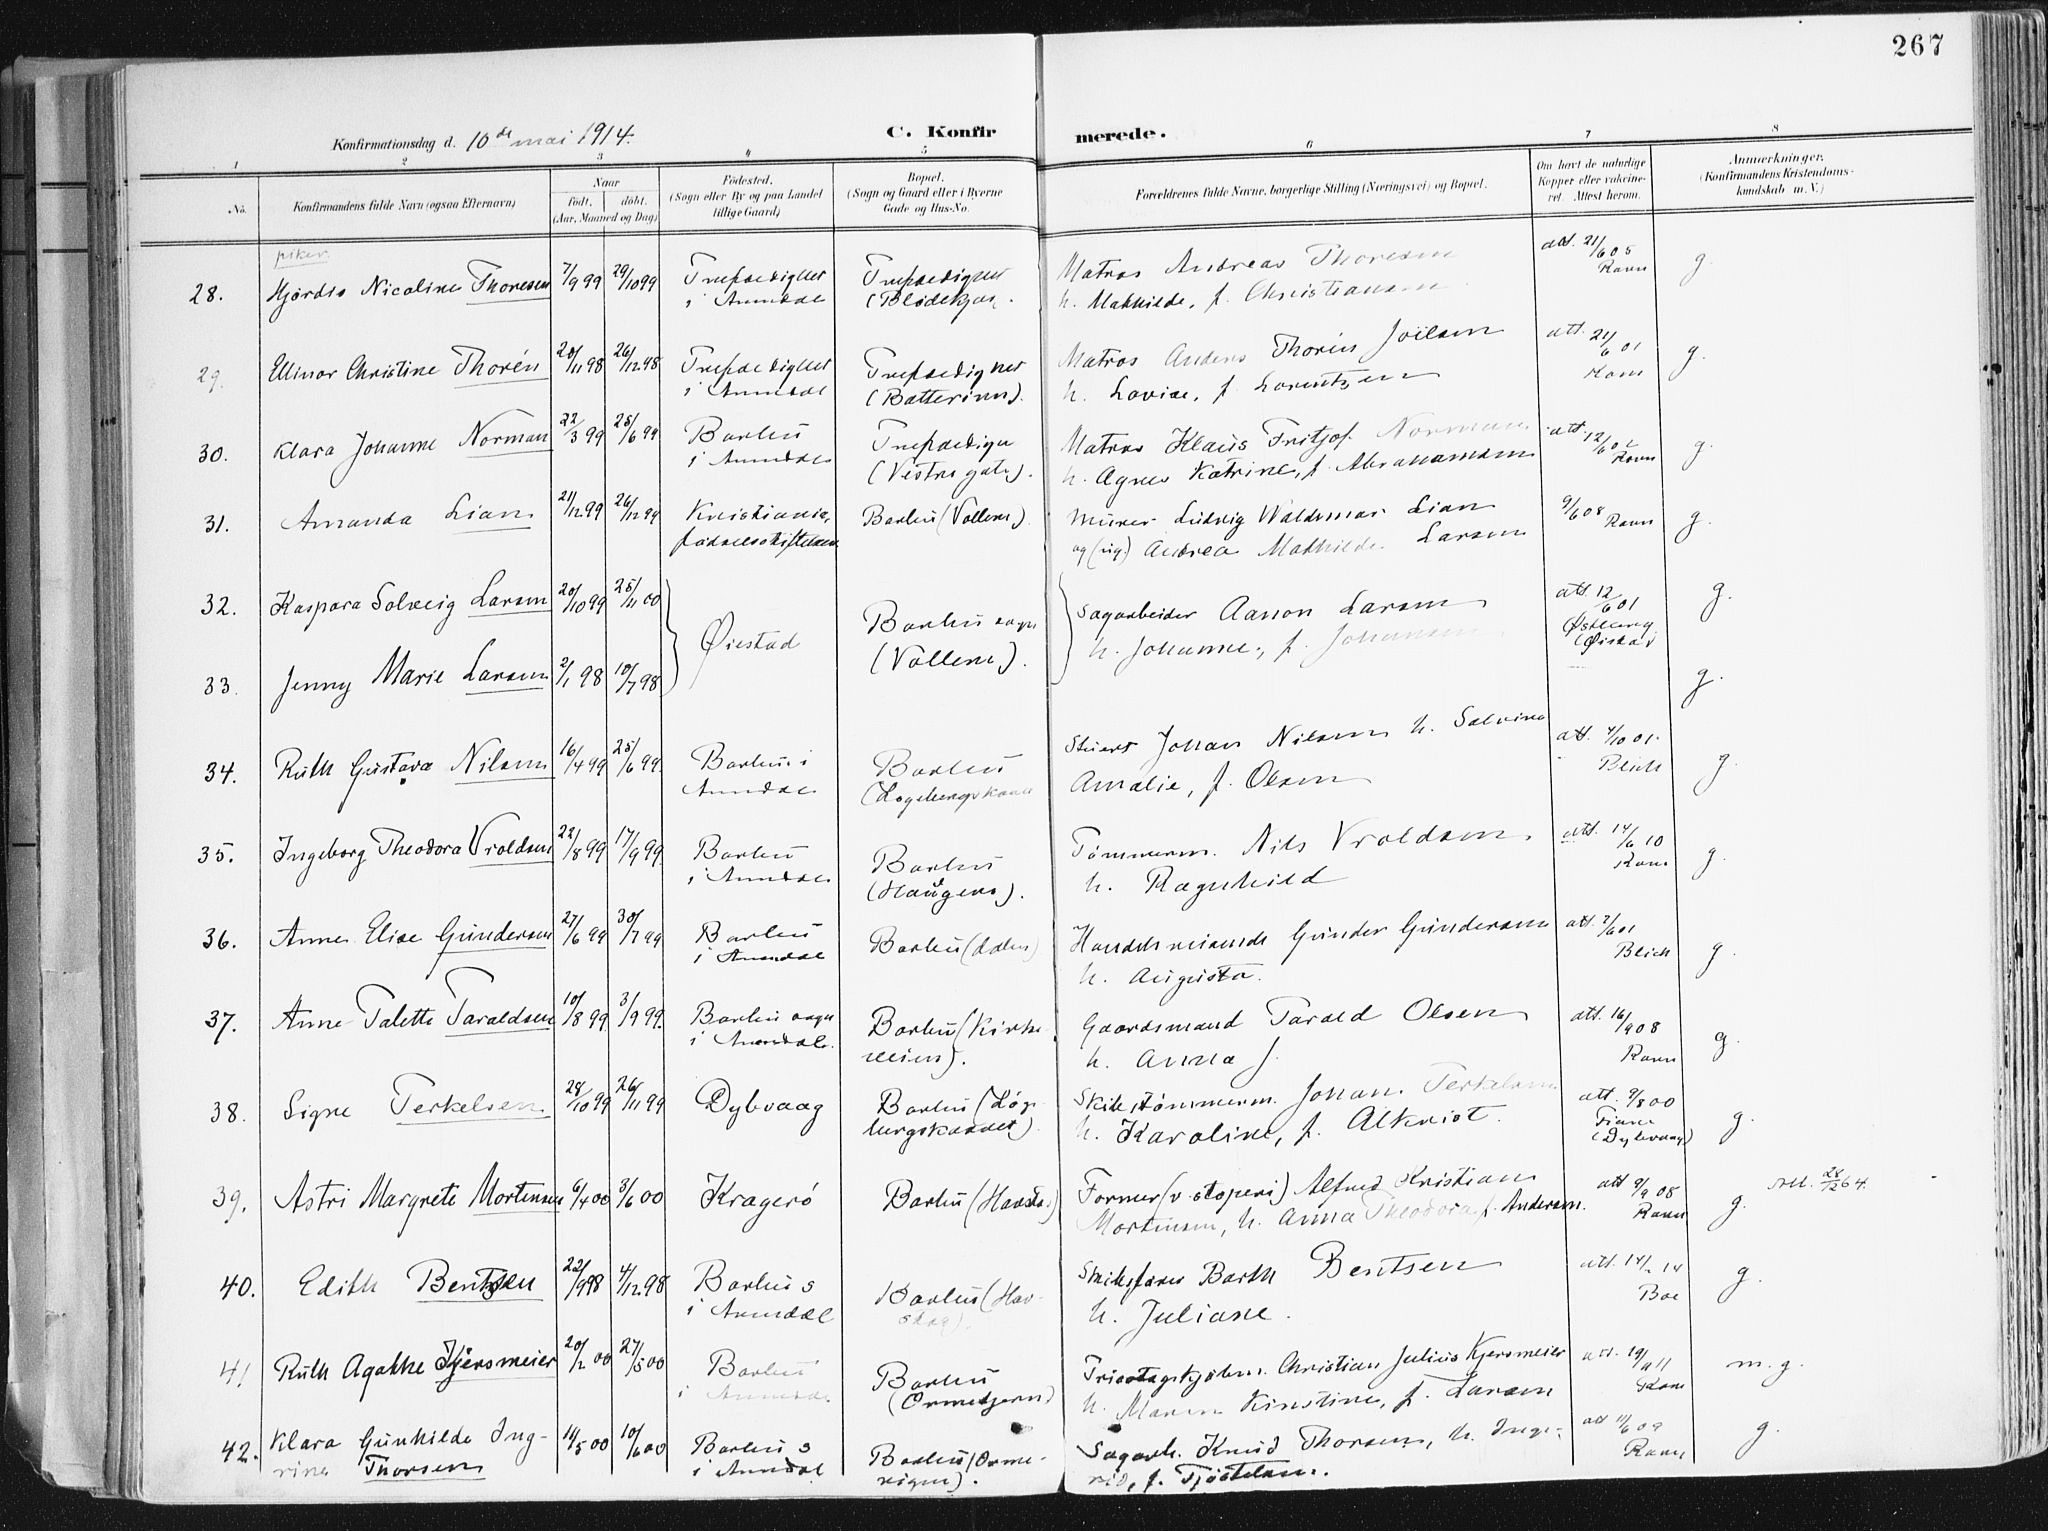 267
Konfirmationsdag d. 10de mai 1914.
C. Konfirmerede.
1 2 3 4 5 6 7 8
No.
Konfirmandens fulde Navn (ogsaa Efternavn)
Naar
født. døbt.
(Aar, Maaned og Dag)
Fødested.
(Sogn eller By og paa Landet
tillige Gaard)
Bopæl.
(Sogn og Gaard eller i Byerne
Gade og Hus-No.
Forældrenes fulde Navne, borgerlige Stilling (Næringsvei) og Bopæl.
Om havt de naturlige
Kopper eller vakcine-
ret. Attest herom.
Anmærkninger.
(Konfirmandens Kristendoms-
kundskab m. V.)
piker
28. Hjørdis Nicoline Thoresen 7/9 99 29/10 99 Trefoldighet Trefoldighet Matros Andreas Thoresen att. 21/6 05 g.
i Arendal h. Mathilde, f. Christiansen Ravn
29. Ellinor Christine Thorén 20/11 98 26/12 98 Trefoldighet Trefoldighet Matros Anders Thorén Joelsen att. 21/6 01 g.
i Arendal (Batteriem). h. Lovise, f. Lorentzen Ravn
30. Klara Johanne Norman 22/3 99 25/6 99 Barbu Trefoldigh Matros Klaus Fritjof Norman att. 12/6 02 g.
i Arendal (Vestregate). h. Agnes Katrine, f. Abrahamsen Ravn
31. Amanda Lian 21/12 99 26/12 99 Kristiania, Barbu (Vollene). Murer Ludvig Waldemar Lian 9/6 08 Ravn g.
fødselsstiftelsen og (ug.) Andrea Mathilde Larsen
32. Kaspara Solveig Larsen 20/10 99 25/11 00 Øiestad Barbu sogn Sagarbeider Aanon Larsen att. 12/6 01 g.
(Vollene). h. Johanne, f. Johansen Østberg
(Øiestad)
33. Jenny Marie Larsen 2/1 98 10/7 98 g.
34. Ruth Gustava Nilsen 16/4 99 25/6 99. Barbu i Barbu Stuert Johan Nilsen h. Salvine att. 4/10 01. g.
Arendal Amalie, f. Olsen Blich
35. Ingeborg Theodora Vroldsen 22/8 99 17/9 99. Barbu Barbu Tømmerm. Nils Vroldsen att. 14/6 10 g.
i Arendal (Haugene). h. Ragnhild Ravn
36. Anne Elise Gundersen 27/6 99 30/7 99 Barbu Barbu Handelsreisende Gunder Gundersen att. 7/6 01 g.
i Arendal h. Augusta. Blich
37. Anne Talette Taraldsen 10/8 99 3/9 99. Barbu sogn Barbu (Kirke- Gaardsmand Tarald Olsen att. 16/9 08 g.
i Arendal. veien). h. Anna J. Ravn
38. Signe Terkelsen 28/10 99 26/11 99 Dybvaag Barbu (Løg- Skibstømmerm. Johan Terkelsen att. 9/8 00 g.
bergskaaret). h. Karoline, f. Alkvist. Fiane
(Dybvaag)
39. Astri Margrete Mortensen 6/4 00 3/6 00 Kragerø Barbu Former (v. støperi) Alfred Kristian att 9/9 08 g. Att. 28/12 64.
Mortensen, h. Anna Theodora f. Andersen. Ravn
40. Edith Bentzen 22/9 98 4/12 98 Barbu s Barbu (Hav- Skibsfører Barth Bentsen att. 14/2 14 g.
i Arendal h. Juliane. Boe
41 Ruth Agathe Kjersmeier 20/2 00 27/5 00 Barbu Barbu Christian Julius Kjersmeier att. m. g.
i Arendal (Ormetjern) h. Maren Kirstine, f. Larsen Ravn
42. Klara Gunhilde Ing- 14/5 00 10/6 00 Barbu s Barbu (Orme- Sagarb. Knud Thorsen, h. Inge- att 11/6 09 g.
rine Thorsen i Arendal rid, f. Tjøstelsen. Ravn